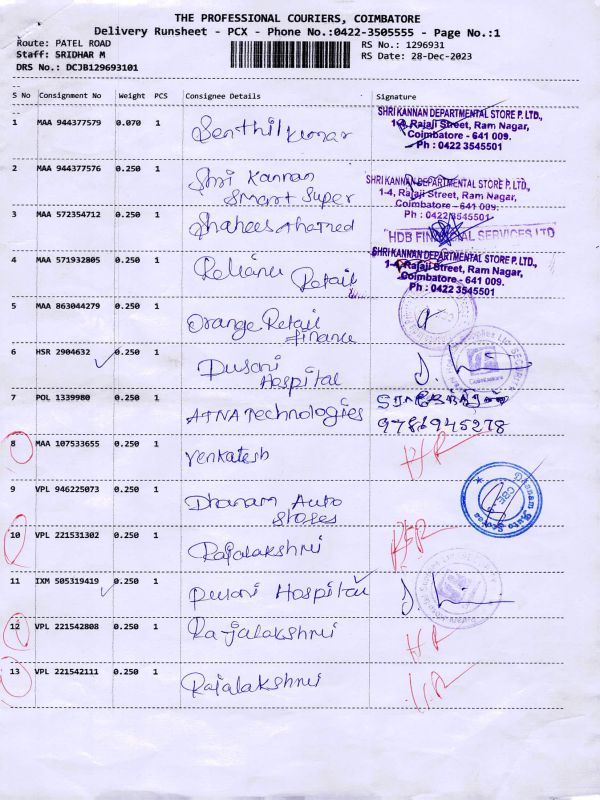 THE PROFESSIONAL COURIERS, COIMBATORE
Delivery Runsheet - PCX - Phone No.:0422-3505555 - Page No.:1
Route: PATEL ROAD
Staff: SRIDHAR M
DRS No.: DCJB129693101
RS No.: 1296931
RS Date: 28-Dec-2023
S No Consignment No Weight PCS Consignee Details Signature
1 MAA 944377579 0.070 1 Senthil kumar
SHRI KANNAN DEPARTMENTAL STORE P. LTD.,
1-4, Rajaji Street, Ram Nagar,
Coimbatore - 641 009.
Ph : 0422 3545501
2 MAA 944377576 0.250 1 Shri Kannan
Smart Super
SHRI KANNAN DEPARTMENTAL STORE P. LTD.,
1-4, Rajaji Street, Ram Nagar,
Coimbatore - 641 009.
Ph : 0422 3545501
3 MAA 572354712 0.250 1 Shahees Ahamed
HDB FINANCIAL SERVICES LTD
4 MAA 571932805 0.250 1 Reliance
Retail
SHRI KANNAN DEPARTMENTAL STORE P. LTD.,
1-4, Rajaji Street, Ram Nagar,
Coimbatore - 641 009.
Ph : 0422 3545501
5 MAA 863044279 0.250 1 Orange Retail
finance
6 HSR 2904632 0.250 1 Pusani
Hospital
7 POL 1339980 0.250 1 ATNA Technologies
9786945278
8 MAA 107533655 0.250 1 Venkatesh
9 VPL 946225073 0.250 1 Dhanam Auto
Stores
Dhanam Auto Stores
10 VPL 221531302 0.250 1 Rajalakshmi
11 IXM 505319419 0.250 1 Pusani Hospital
12 VPL 221542808 0.250 1 Rajalakshmi
13 VPL 221542111 0.250 1 Rajalakshmi